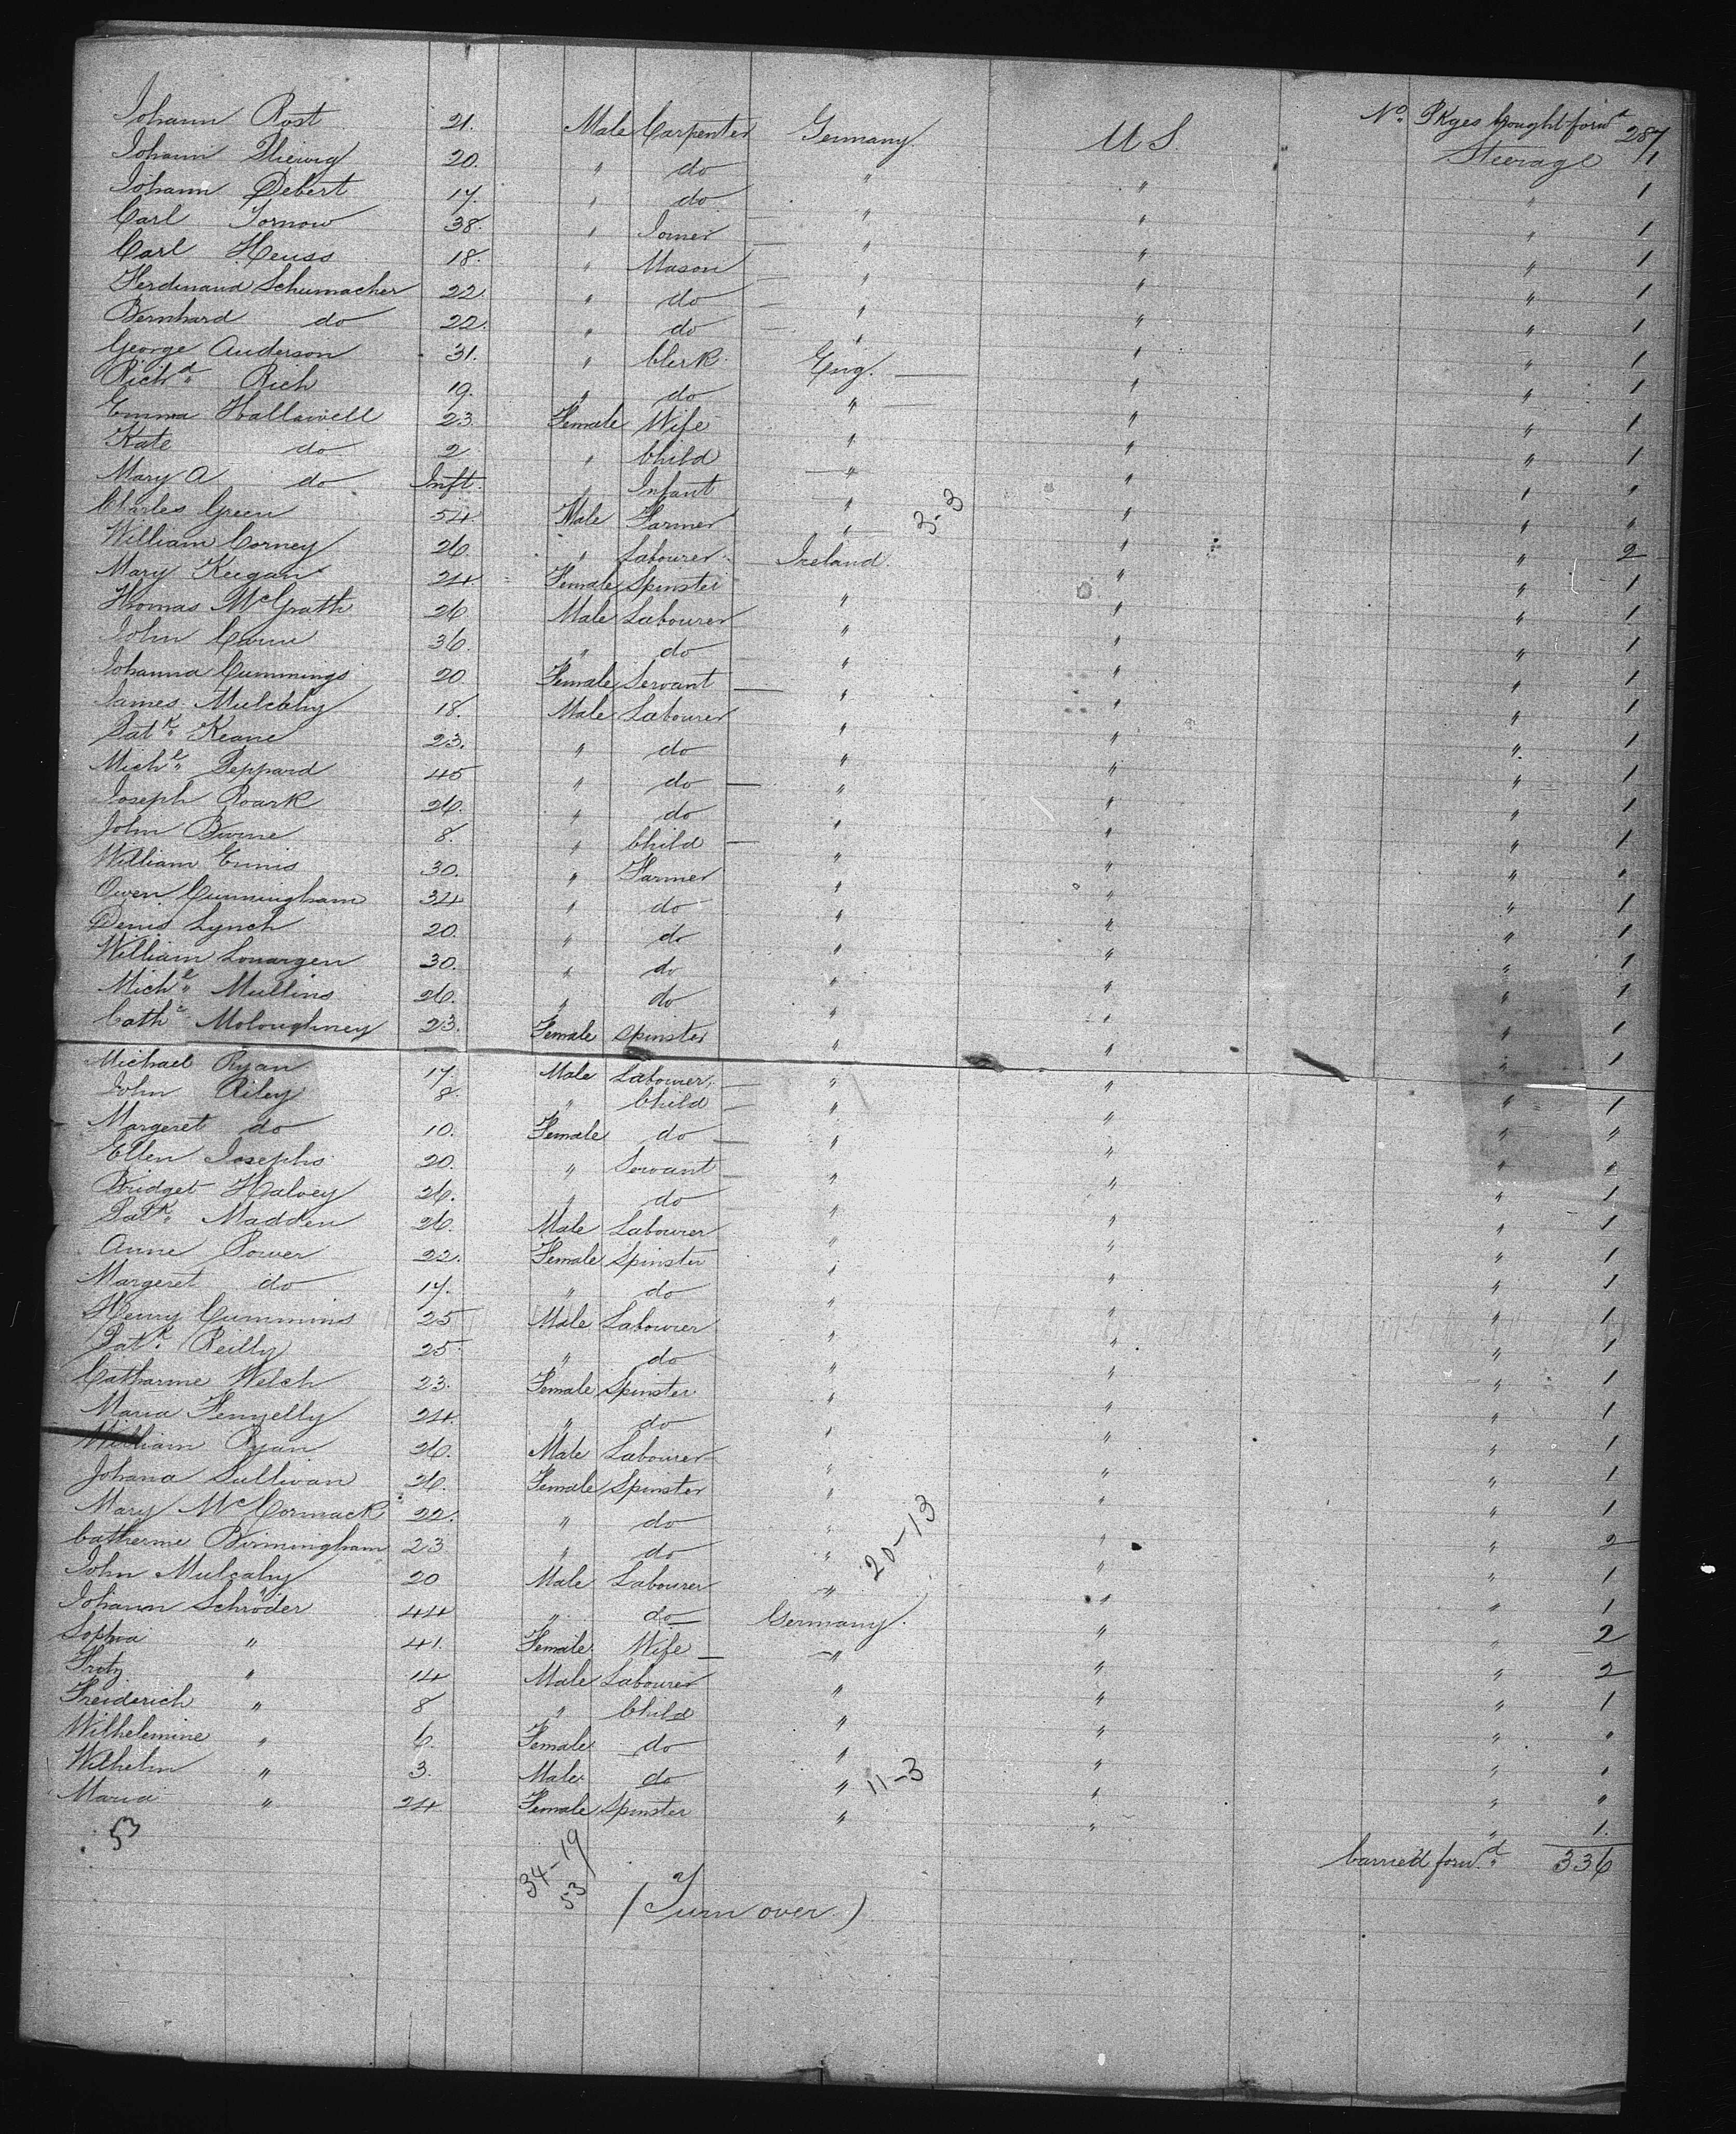 No. Pkges brought forwd 287
Johann Rost 21. Male Carpenter Germany U S. Steerage 1
Johann 20. " do " " " 1
Johann Debert 17. " do " " " 1
Carl Tornow 38. " Joiner " " " 1
Carl Heuss 18. " Mason " " " 1
Ferdinand Schumacher 22. " do " " " 1
Bernhard do 22. " do " " " 1
George Anderson 31. " Clerk Eng. " " 1
Richd. Rich 19. " do " " " 1
Emma Hallawell 23 Female Wife " " " 1
Kate do 2 " Child " " " "
Mary A do Inft. " Infant " " " "
Charles Green 54 Male Farmer " 3-3 " " 2
William Corney 26. " Labourer Ireland. " " 1
Mary Keegan 24. Female Spinster " " " 1
Thomas McGrath 26 Male Labourer " " " 1
John 36. " do " " " 1
Johanna Cummings 20 Female Servant " " " 1
James Mulcahy 18. Male Labourer " " " 1
Patk. Keane 23. " do " " " 1
Michl. Peppard 45 " do " " " 1
Joseph Roark 26. " do " " " 1
John Burne 8. " Child " " " "
William Ennis 30. " Farmer " " " 1
Owen Cunningham 34 " do " " " 1
Denis Lynch 20. " do " " " 1
William Lonargen 30. " do " " " 1
Michl. Mullins 26. " do " " " 1
Cathe. Moloughney 23. Female Spinster " " " 1
Michael Ryan 17. Male Labourer " " " 1
John Riley 8. " Child " " " "
Margeret do 10. Female do " " " "
Ellen Josephs 20. " Servant " " " 1
Bridget Halvey 26. " do " " " 1
Patk. Madden 26. Male Labourer " " " 1
Anne Power 22. Female Spinster " " " 1
Margeret do 17. " do " " " 1
Henry Cummins 25 Male Labourer " " " 1
Patk. Reilly 25 " do " " " 1
Catharine Welch 23. Female Spinster " " " 1
Maria Fennelly 24. " do " " " 1
William Ryan 26. Male Labourer " " " 1
Johana Sullivan 26. Female Spinster " " " 1
Mary McCormack 22. " do " " " 2
Catherine Birmingham 23 " do " 20-13 " " 1
John Mulcahy 20 Male Labourer " " " 1
Johann Schröder 44 " do Germany. " " 2
Sophia " 41. Female Wife " " " 2
" 14 Male Labourer " " " 1
Freiderich " 8 " Child " " " "
Wilhelmine " 6. Female do " " " "
Wilhelm " 3. Male do " 11-3 " " "
Maria " 24 Female Spinster " " " 1.
53 34-19 Carried forwd. 336
53
(Turn over)